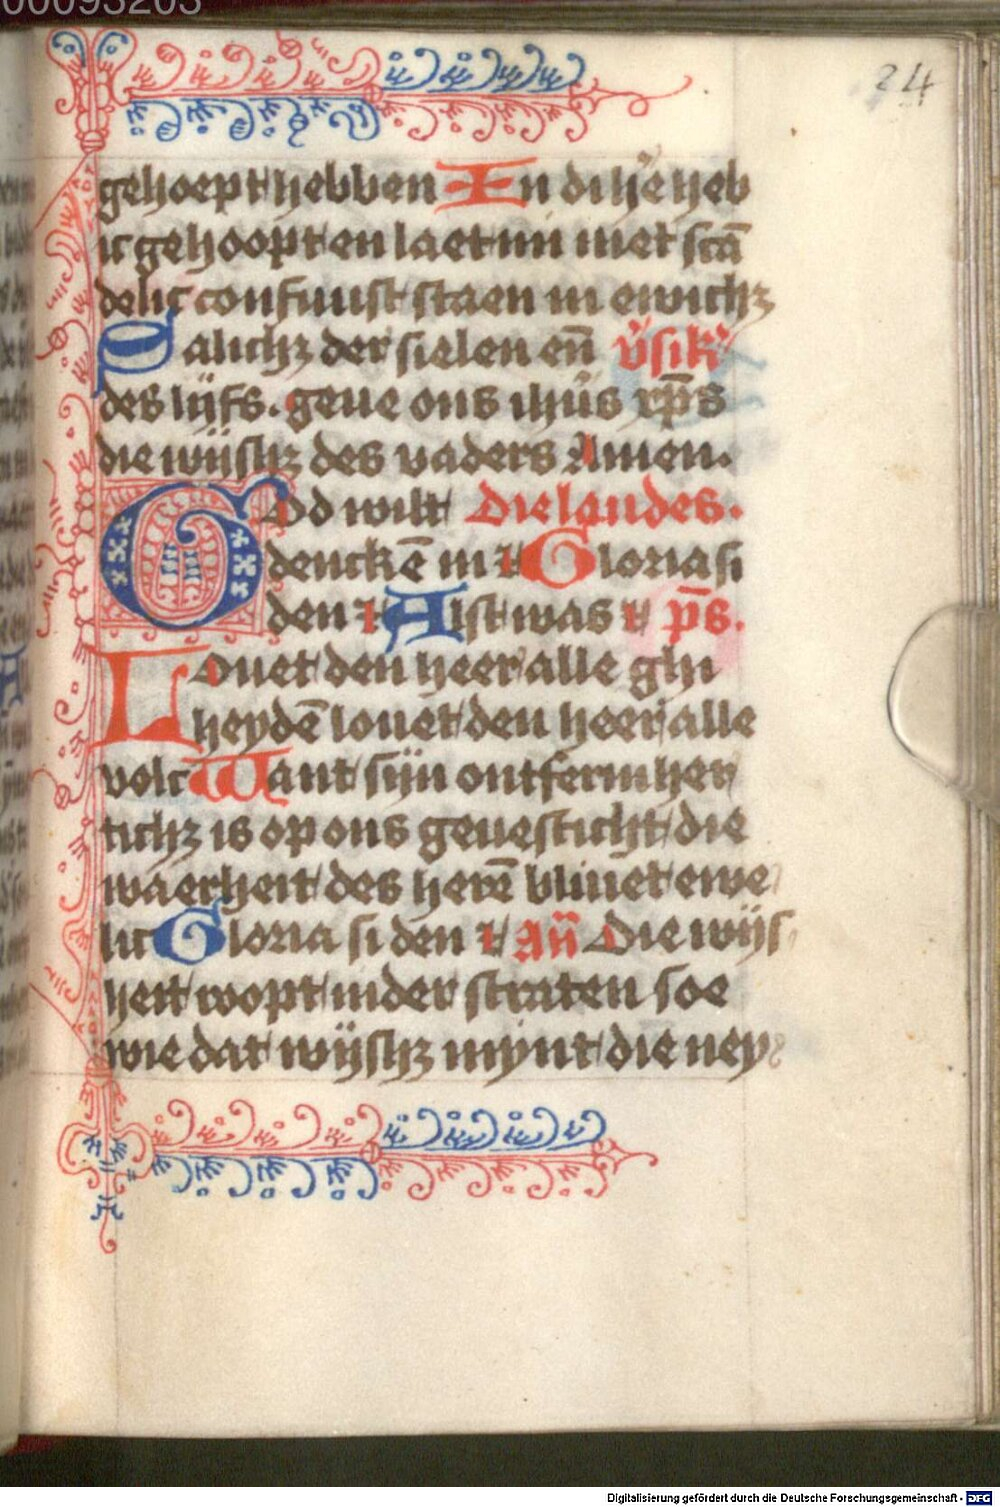 00093203
24
gehoept hebben In di hē heb
ic gehoopt en laet mi niet scā
delic confuust staen in ewichȝ
Salichȝ der sielen eñ v̄sik'
des lijfs. geue ons ihūs xp̄s
die wijshȝ des vaders Amen.
God wilt Die laudes.
dencken̄ in ⁊ Gloria si
den ⁊ Alst was ⁊ p̄s.
Louet den heer alle ghi
heydē louet den heer alle
volc Want sijn ontfermher
tichȝ is op ons geuesticht die
waerheit des herē bliuet ewe
lic Gloria si den ⁊ Añ Die wijs
heit roopt inder straten soe
wie dat wijshȝ mynt die ney
Digitalisierung gefördert durch die Deutsche Forschungsgemeinschaft - DFG